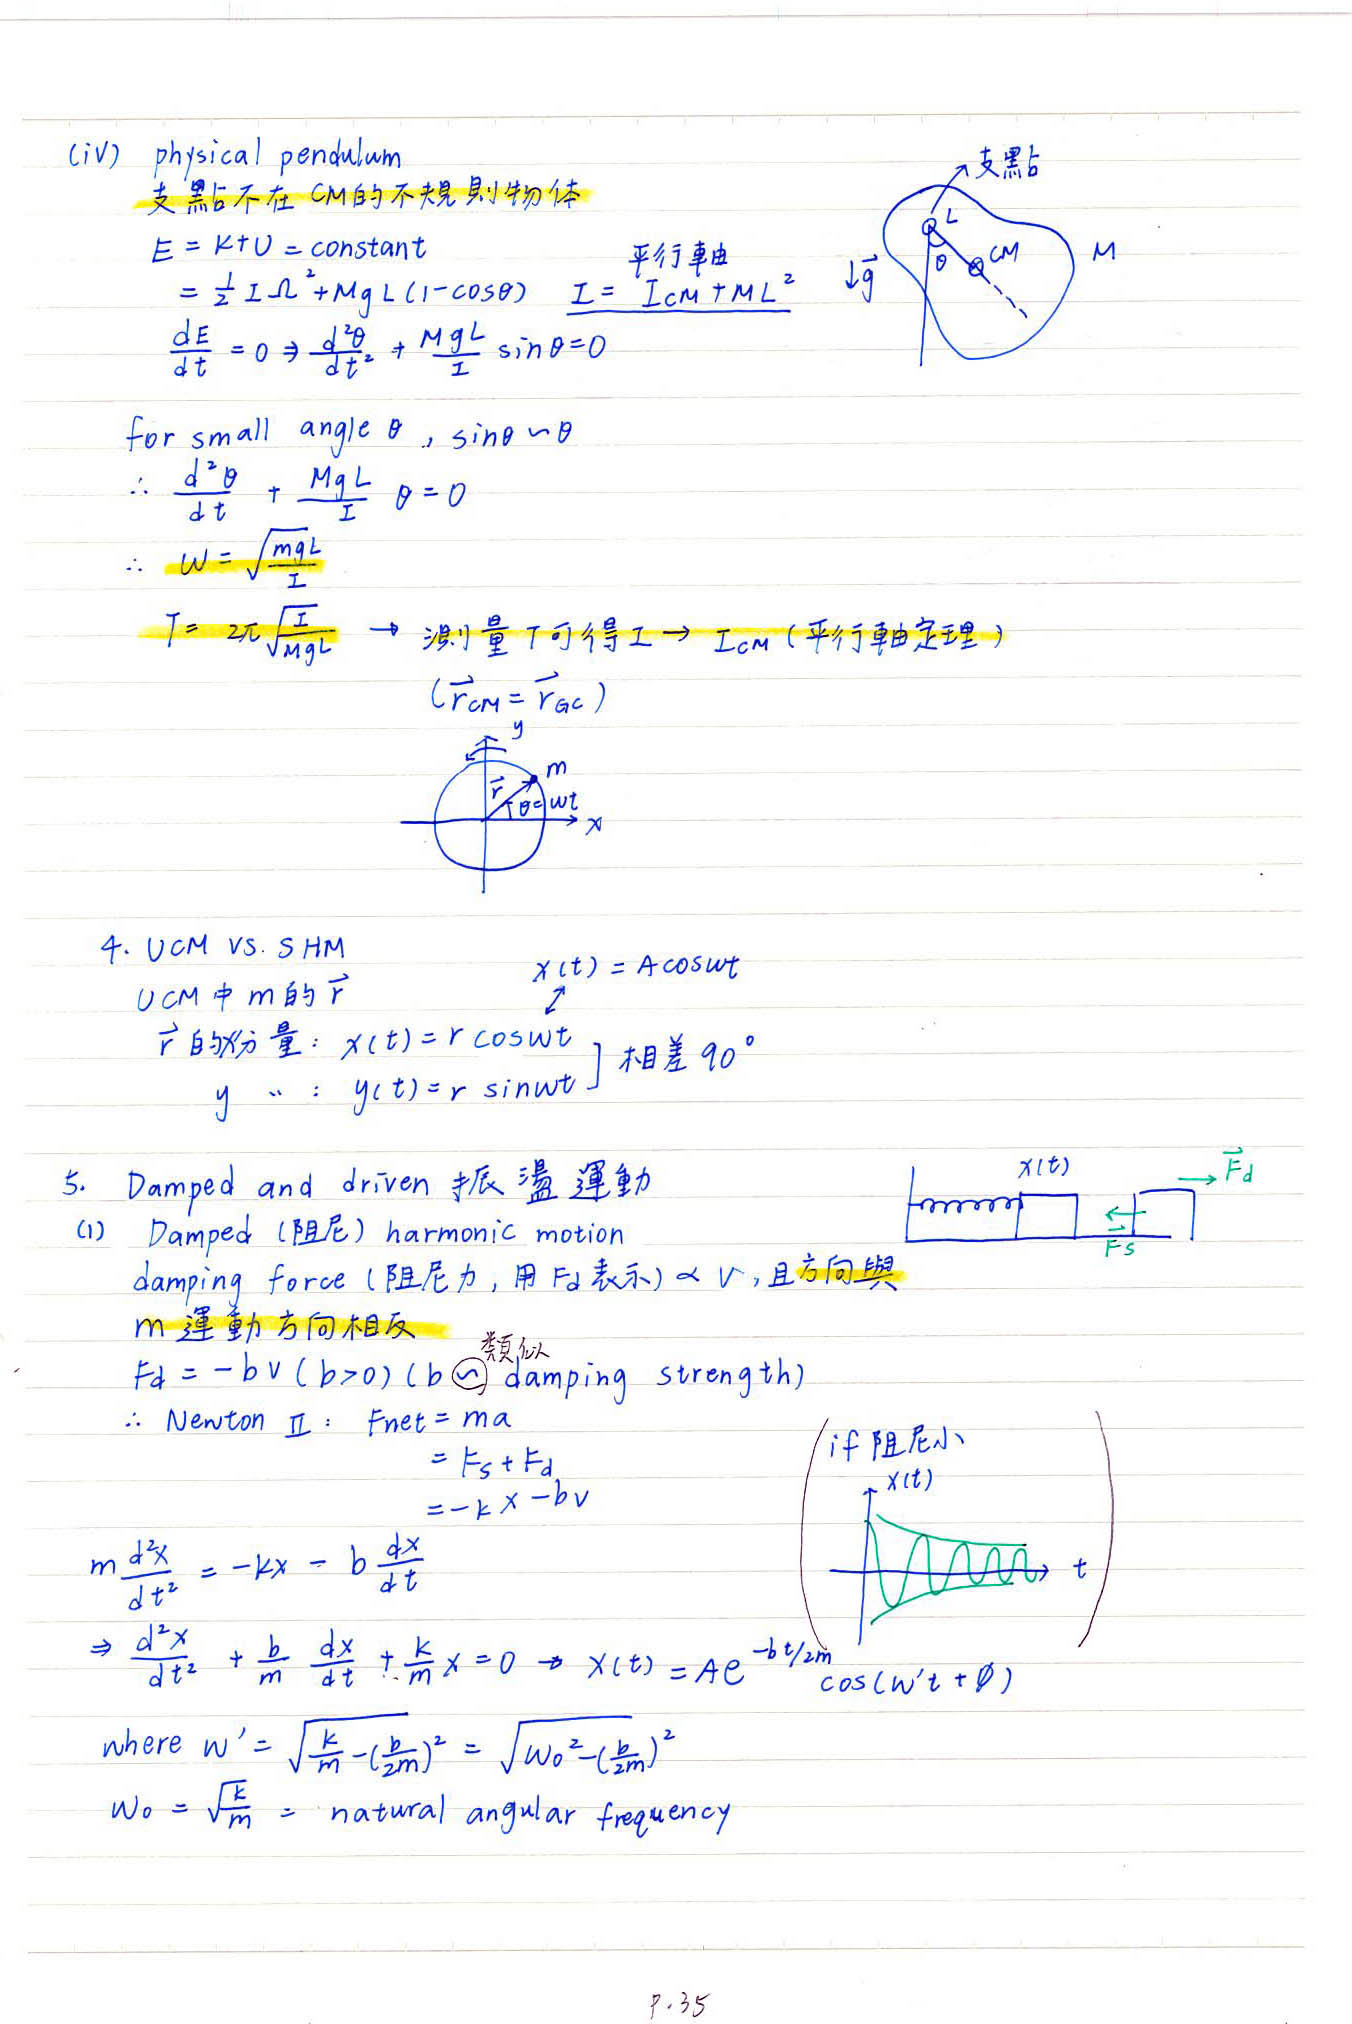 (iv) physical pendulum
支點不在CM的不規則物体
E = K+U = constant
= 1/2 I Ω² + MgL(1-cosθ)
平行軸
I = I_CM + ML²
dE/dt = 0 ⇒ d²θ/dt² + MgL/I sinθ = 0
支點
L
θ
CM
M
↓g⃗
for small angle θ , sinθ ∽ θ
∴ d²θ/dt + MgL/I θ = 0
∴ W = √(mgL/I)
T = 2π √(I/MgL) → 測量T可得I → I_CM (平行軸定理)
(r⃗_CM = r⃗_GC)
y
m
r⃗
θ=wt
x
4. UCM vs. SHM
x(t) = A coswt
UCM中m的r⃗
r⃗的x分量: x(t) = r coswt
y 〃 : y(t) = r sinwt ] 相差90°
5. Damped and driven 振盪運動
x(t)
F⃗d
F⃗s
(1) Damped (阻尼) harmonic motion
damping force (阻尼力, 用Fd表示) ∝ V, 且方向與
m運動方向相反
類似
Fd = -bv (b>0) (b ∽ damping strength)
∴ Newton II : Fnet = ma
= Fs + Fd
= -kx - bv
if 阻尼小
x(t)
t
m d²x/dt² = -kx - b dx/dt
⇒ d²x/dt² + b/m dx/dt + k/m x = 0 → x(t) = A e^(-bt/2m) cos(w't + ϕ)
where w' = √(k/m - (b/2m)²) = √(w₀² - (b/2m)²)
w₀ = √(k/m) = natural angular frequency
P.35